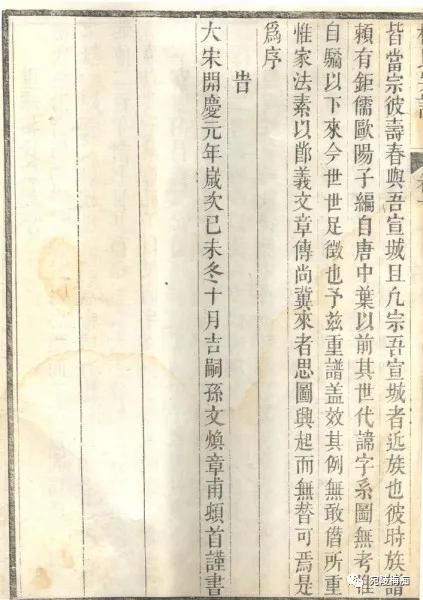 皆當宗彼壽春與吾宣城且凢宗吾宣城者近族也彼時族譜
賴有鉅儒歐陽子編自唐中葉以前其世代諱字系圖無考惟
自驕以下來今世世足徵也予兹重譜盖效其例無敢僭所重
惟家法素以節義文章傳尚冀來者思圖興起而無替可焉是
爲序
告
大宋開慶元年歲次己未冬十月吉嗣孫文煥章甫頓首謹書
宛陵梅苑